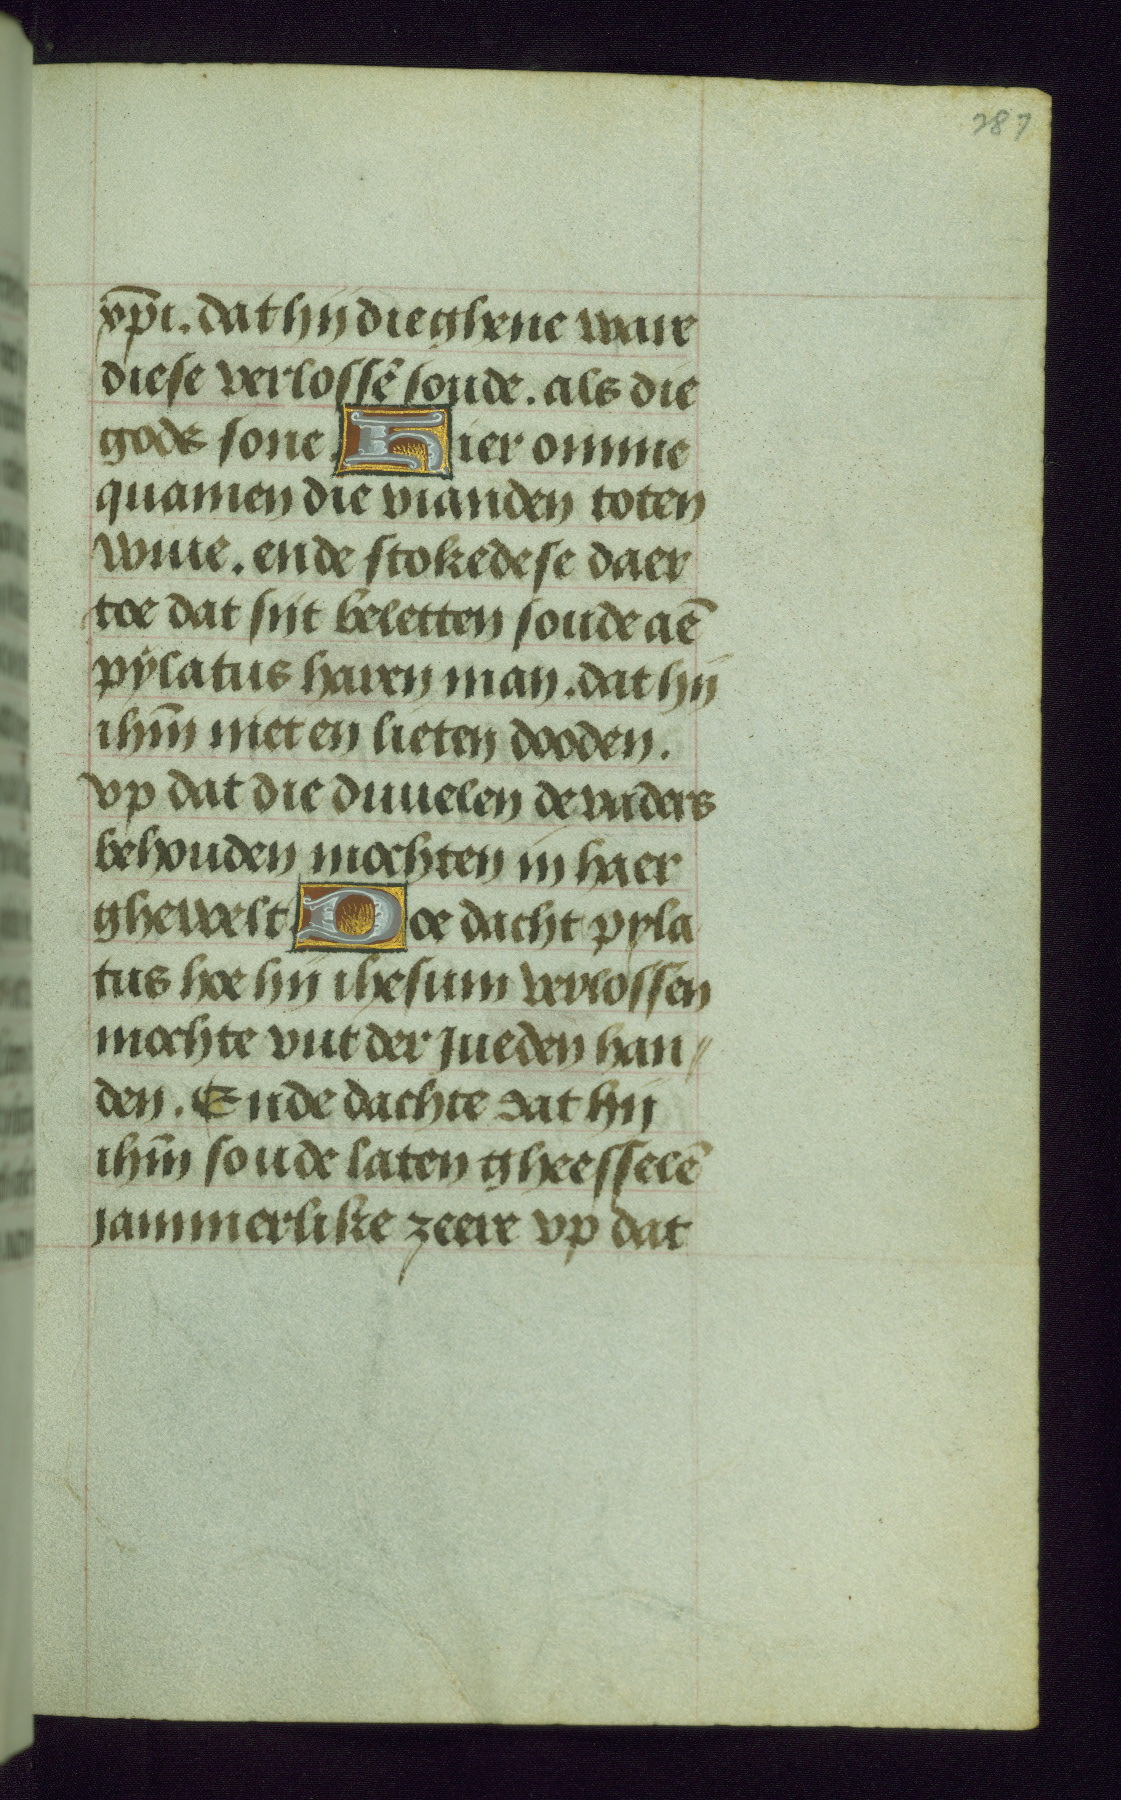 287
xp̄i. dat hij die ghene ware
diese verlossē soude. als die
gods sone. Hier omme
quamen die vianden toten
wiue. ende stokedese daer
toe dat sijt beletten soude aē
pylatus haren man. dat hij
ihm̄ niet en lieten dooden.
vp dat die duuelen de vaders
behouden mochten in haer
ghewelt. Doe dacht pyla
tus hoe hij ihesum verlossen
mochte vut der Jueden han//
den. Ende dachte dat hij
ihm̄ soude laten gheesselē
jammerlike zeere vp dat